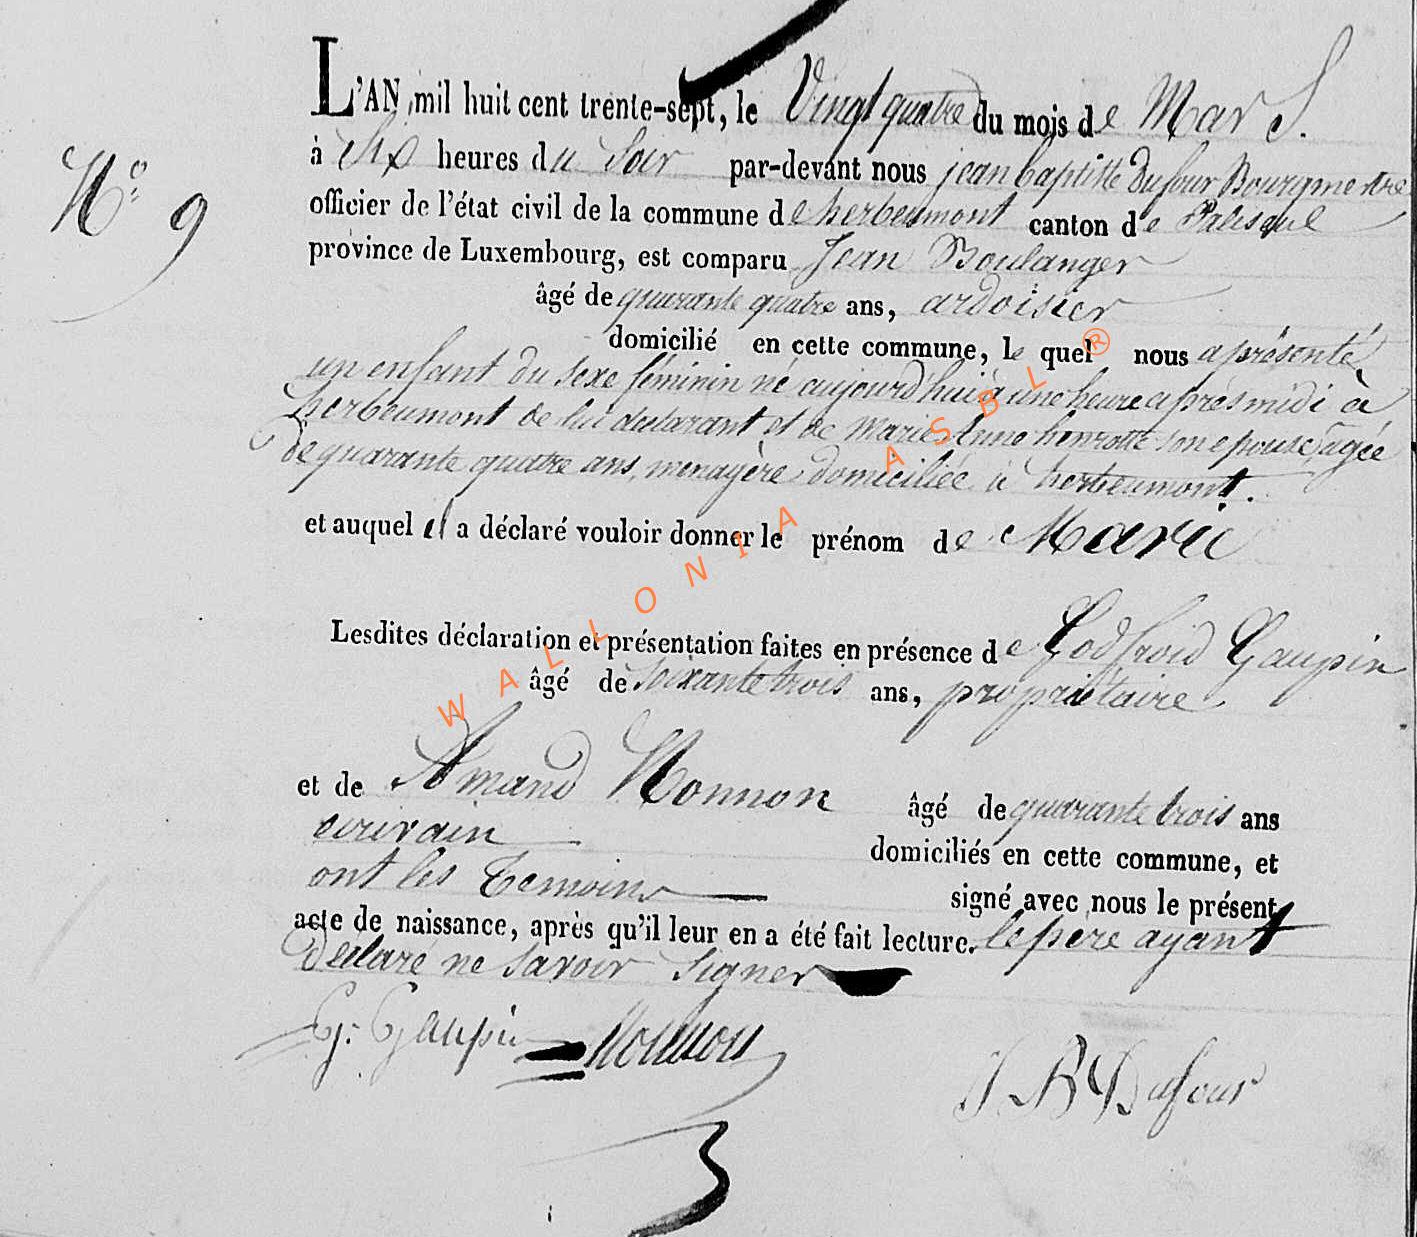 L'AN mil huit cent trente-sept, le Vingt quatre du mois de Mars.
à Six heures du Soir par-devant nous jean baptiste Dufour Bourgmestre
N° 9
officier de l'état civil de la commune de herbeumont canton de Paliseul
province de Luxembourg, est comparu Jean Boulanger
âgé de quarante quatre ans, ardoisier
domicilié en cette commune, le quel nous a présenté
un enfant du sexe féminin né aujourd'hui à une heure après midi à
herbeumont de lui déclarant et de Marie Anne henrotte son epouse, agée
de quarante quatre ans, menagère domiciliée à herbeumont.
et auquel il a déclaré vouloir donner le prénom de Marie
Lesdites déclaration et présentation faites en présence de Godfroid Gaupin
âgé de soixante trois ans, propriétaire
et de Amand Monnon âgé de quarante trois ans
ecrivain domiciliés en cette commune, et
ont les Temoins signé avec nous le présent
acte de naissance, après qu'il leur en a été fait lecture. le père ayant
Déclaré ne savoir signer
G. Gaupin Monnon
J B Dufour
WALLONIA ASBL ®